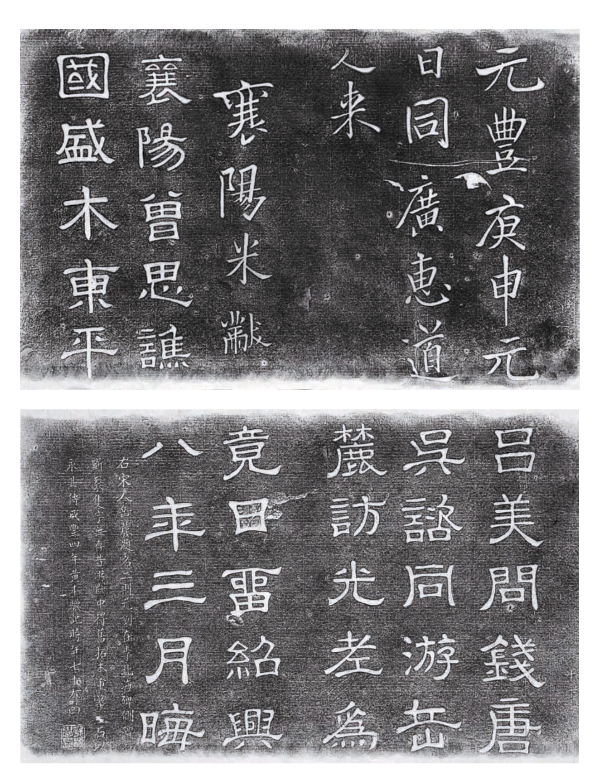 元豐庚申元
日同廣惠道
人来
襄陽米黻
襄陽曾思譙
國盛木東平
呂美問錢唐
吳諮同游岳
麓訪光老爲
竟日畱紹興
八年三月晦